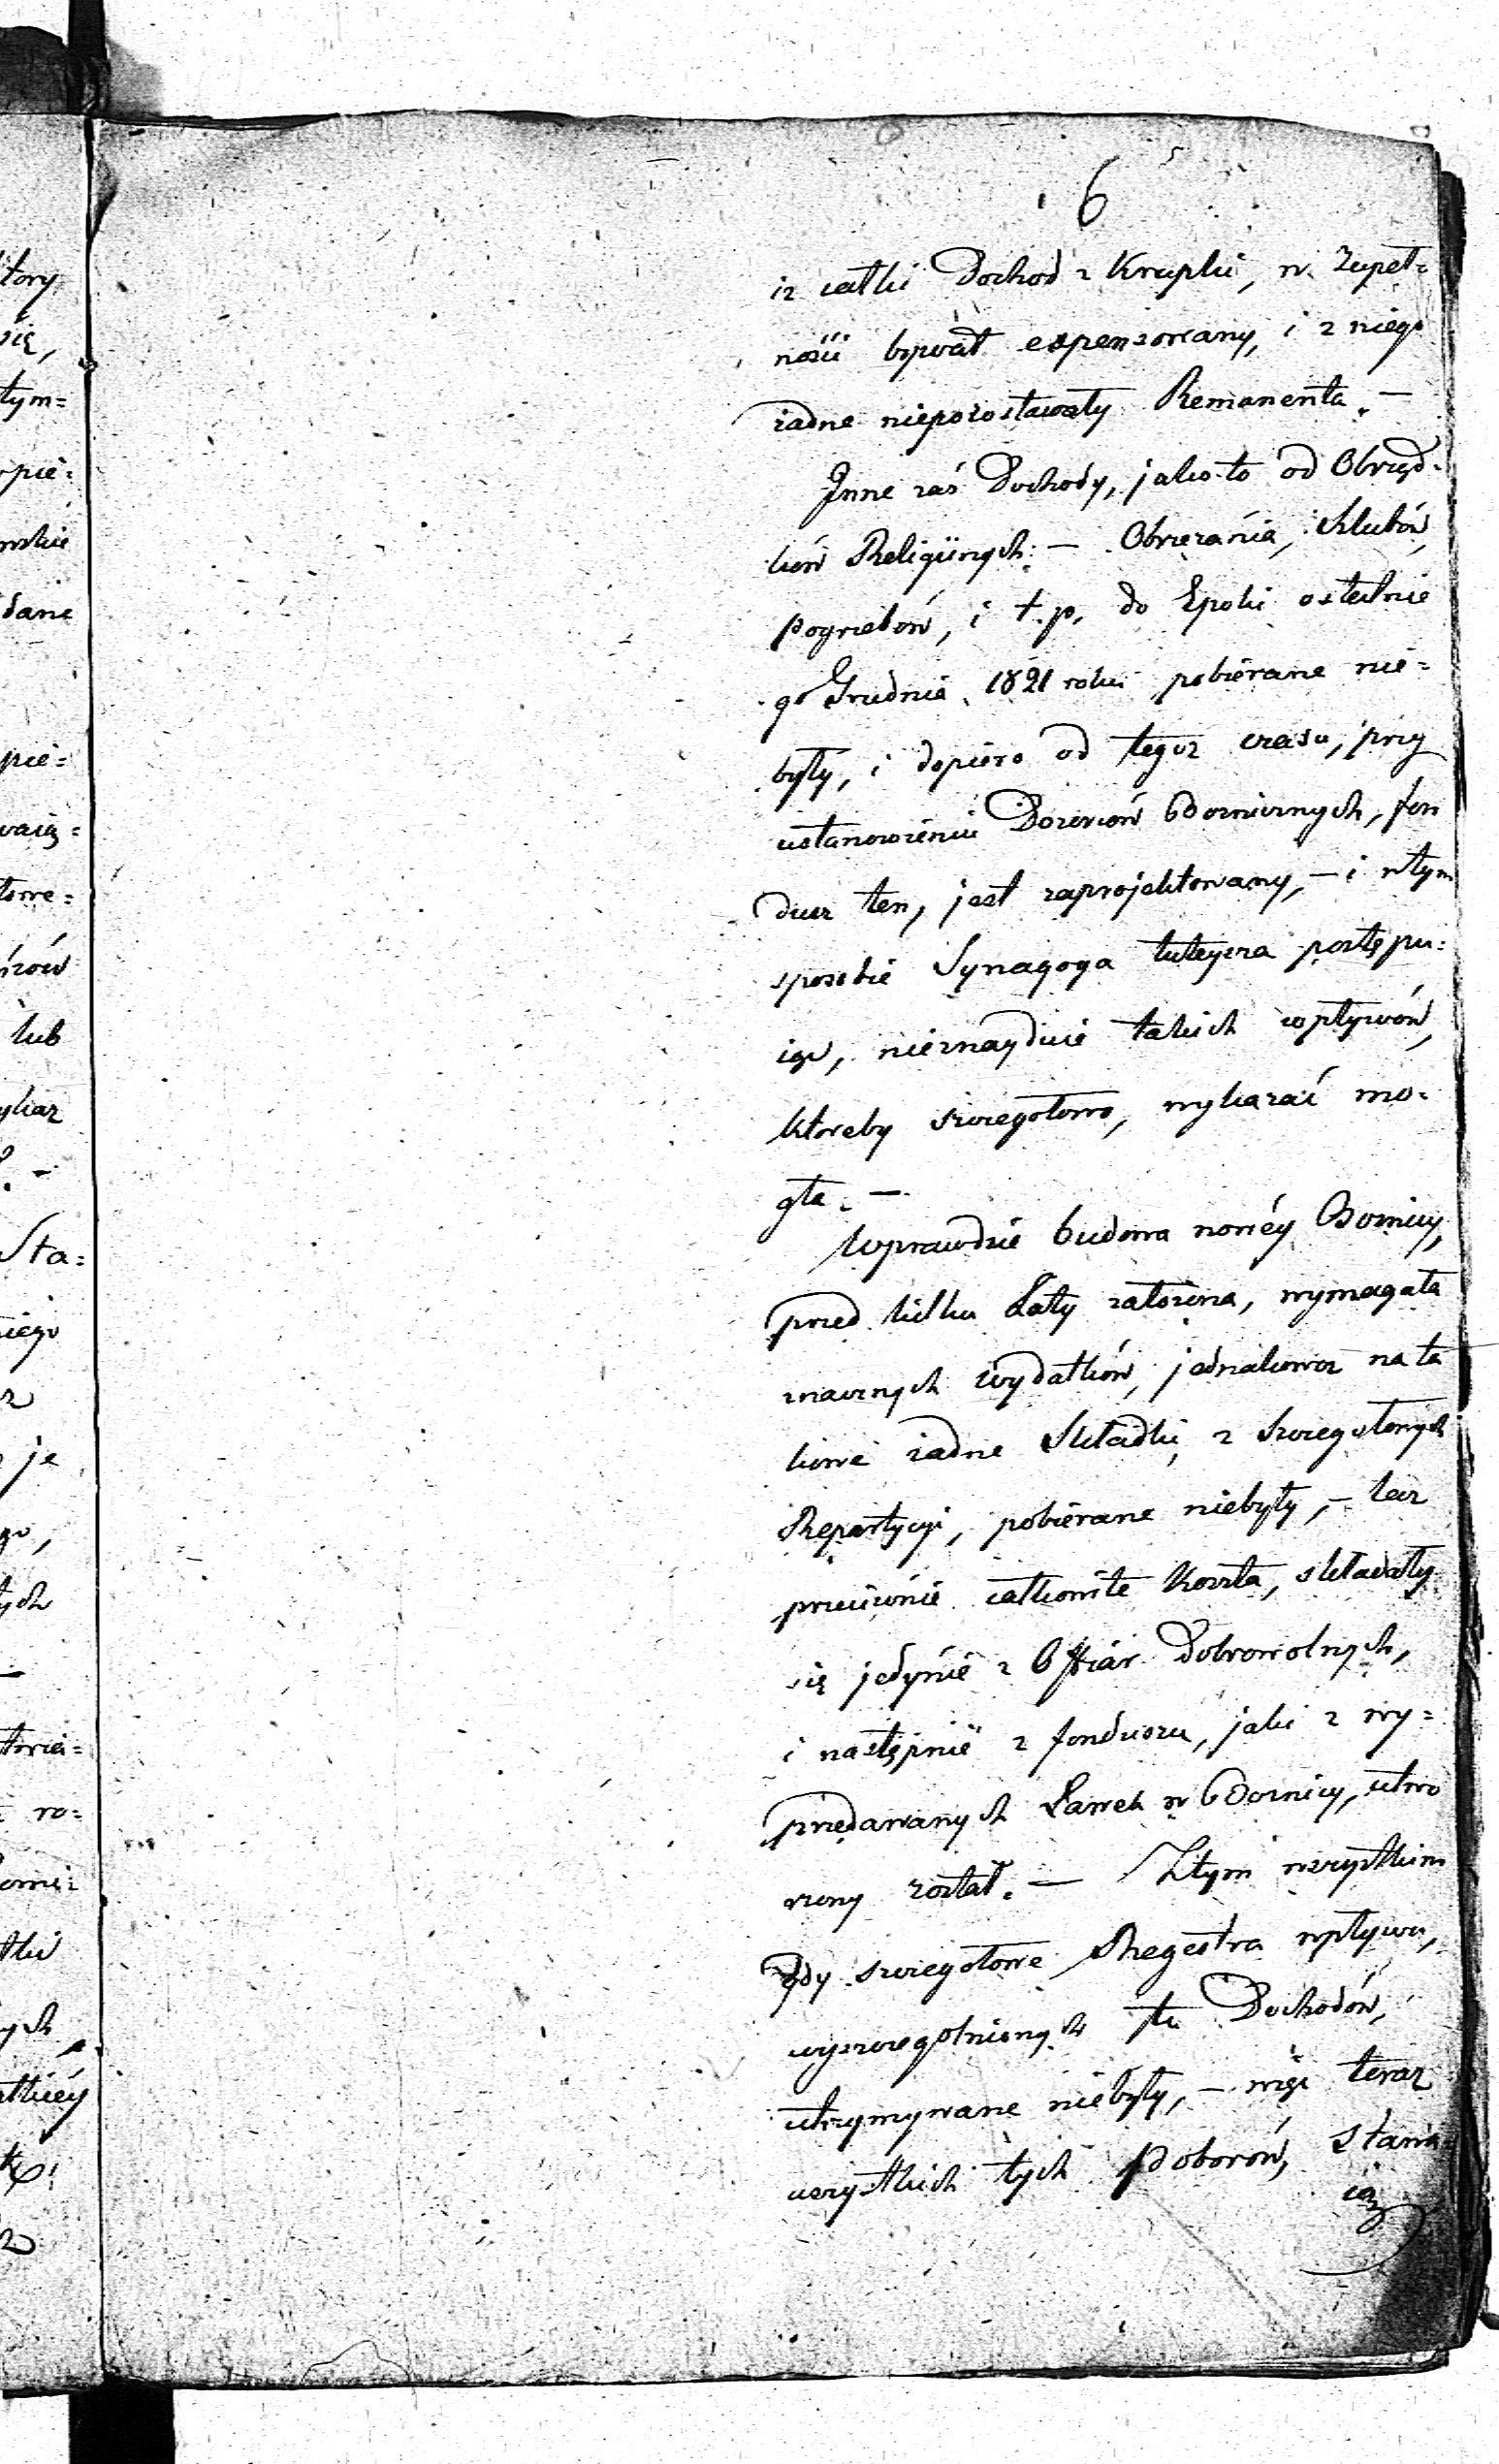 6
iż całki Dochod z Krupki, w Zupeł=
ności bywał expensowany, i z niego
żadne niepozostawały Remanenta. —
Jnne zaś Dochody, jako-to od Obrząd=
ków Religiinych: — Obrzezania, Slubów,
pogrzebów, i t.p. do Epoki ostatnie
go Grudnia 1821 roku pobierane nie=
były, i dopiéro od tegoż czasu, przy
ustanowieniu Dozorców Boznicznych, fun
dusz ten, jest zaprojektowany, — i w tym
sposobie Synagoga tuteysza postępu=
iąc, nieznayduie takich wpływów,
któreby szczegołowo, wykazać mo=
gła. —
Wprawdzie budowa nowéy Boznicy,
przed kilku Laty założona, wymagała
znacznych wydatków, jednakowoż na ta
kowe żadne Składki, z Szczegołowych
Repartycyi, pobierane niebyły, — lecz
przeciwnie całkowite Koszta, składały
się jedynie z Offiar Dobrowolnych,
i następnie z funduszu, jaki z wy=
przedawanych Ławek w Boznicy, utwo
rzony został. — Z tym wszystkim
gdy szczegołowe Regestra wpływu,
wyszczegolnionych tu Dochodów,
utrzymywane niebyły, — więc teraz
wszystkich tych Poborów, stawa=
iąc
tory
się,
tym=
pie=
dane
pie=
lub
Sta=
je
ych
ro=
ych